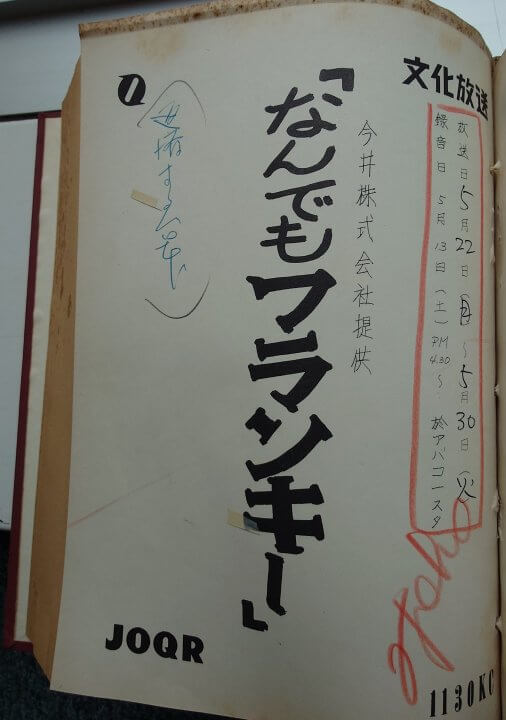 文化放送
放送日 5月22日(月)~5月30日(火)
録音日 5月13日(土)PM4.30~ 於アバコ一スタ
今井株式会社提供
「なんでもフランキー」
JOQR
1130KC